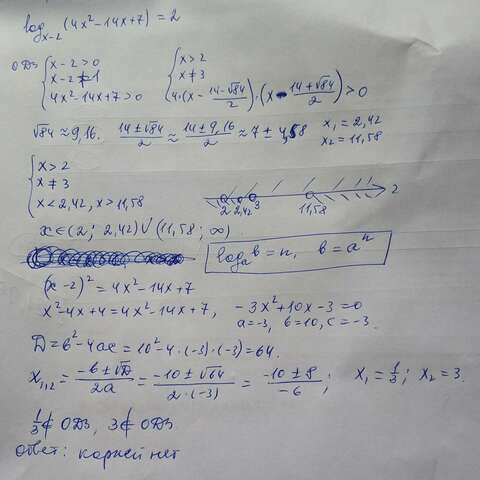 log_{x-2}(4x²-14x+7)=2
ОДЗ { x-2>0 { x>2
x-2≠1 x≠3
4x²-14x+7>0 4·(x - (14-√84)/2)·(x - (14+√84)/2)>0
√84≈9,16. (14±√84)/2 ≈ (14±9,16)/2 ≈ 7±4,58 x₁=2,42
x₂=11,58
{ x>2
x≠3
x<2,42, x>11,58 2 2,42 3 11,58 2
x∈(2; 2,42)∪(11,58; ∞)
log_a b=n, b=aⁿ
(x-2)²=4x²-14x+7
x²-4x+4=4x²-14x+7, -3x²+10x-3=0
a=-3, b=10, c=-3.
D=b²-4ac=10²-4·(-3)·(-3)=64.
x₁,₂=(-b±√D)/2a=(-10±√64)/(2·(-3))=(-10±8)/-6; x₁=1/3; x₂=3.
1/3∉ОДЗ, 3∉ОДЗ
ответ: корней нет